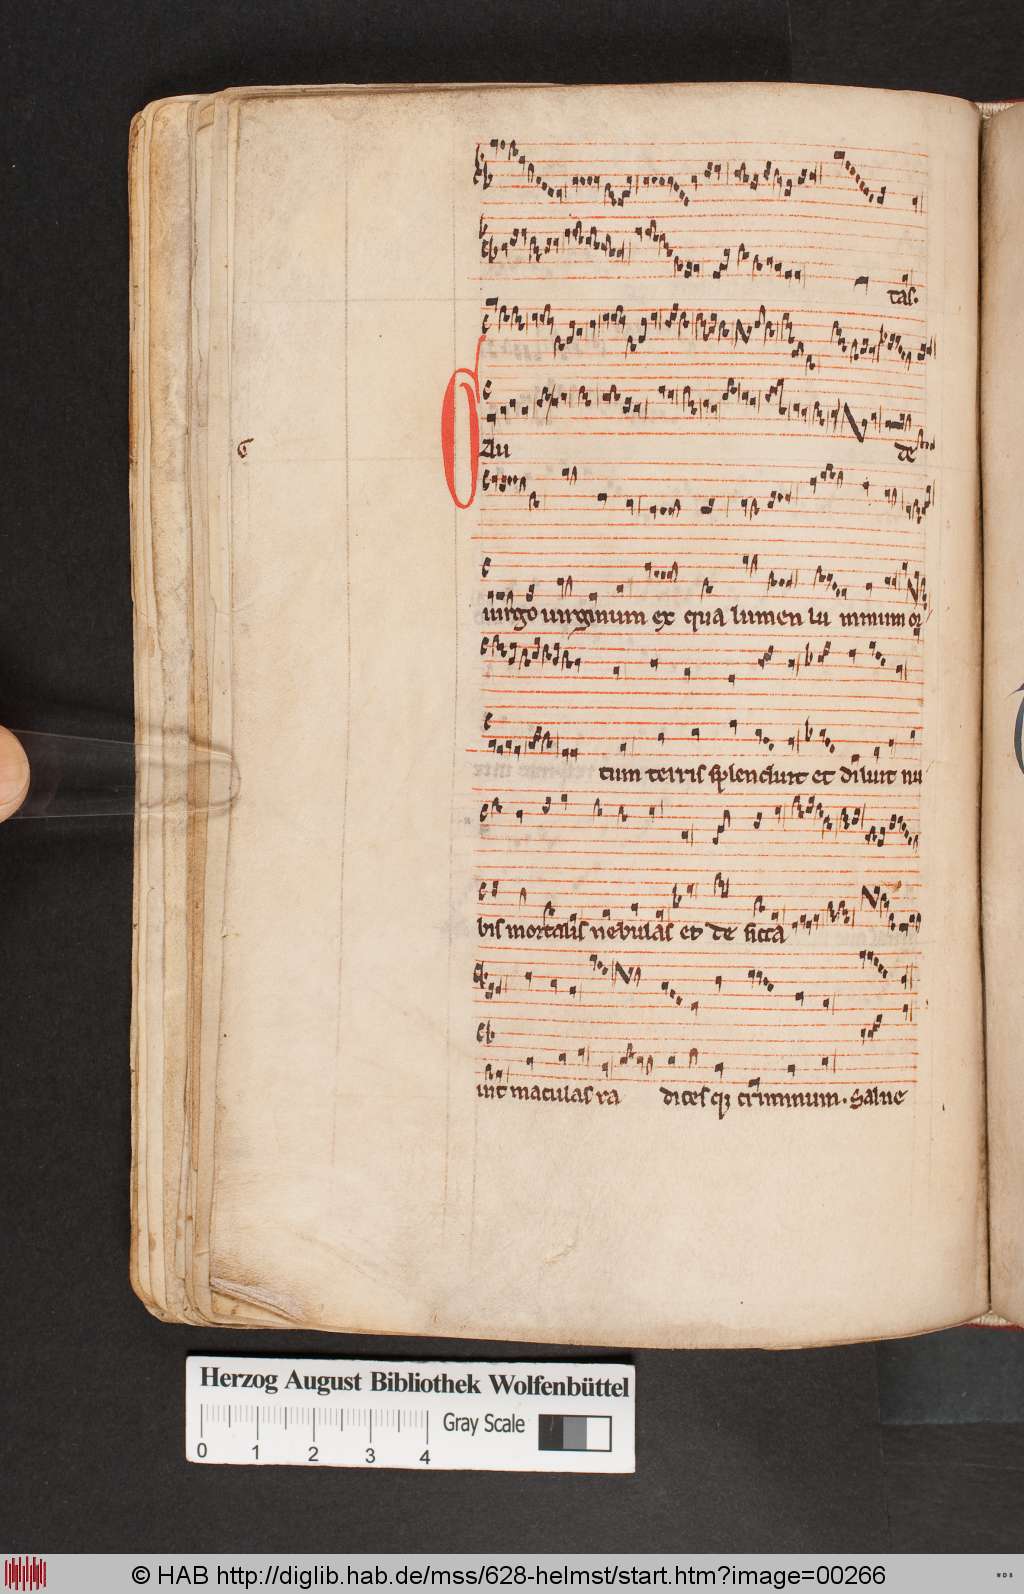 tas.
G
Au de
uirgo uirginum ex qua lumen lu minum or
tum terris splenduit et diluit nu
bis mortalis nebulas et de sicca
uit maculas ra dices q; criminum. Salue
Herzog August Bibliothek Wolfenbüttel
0 1 2 3 4
Gray Scale
© HAB http://diglib.hab.de/mss/628-helmst/start.htm?image=00266
WDB